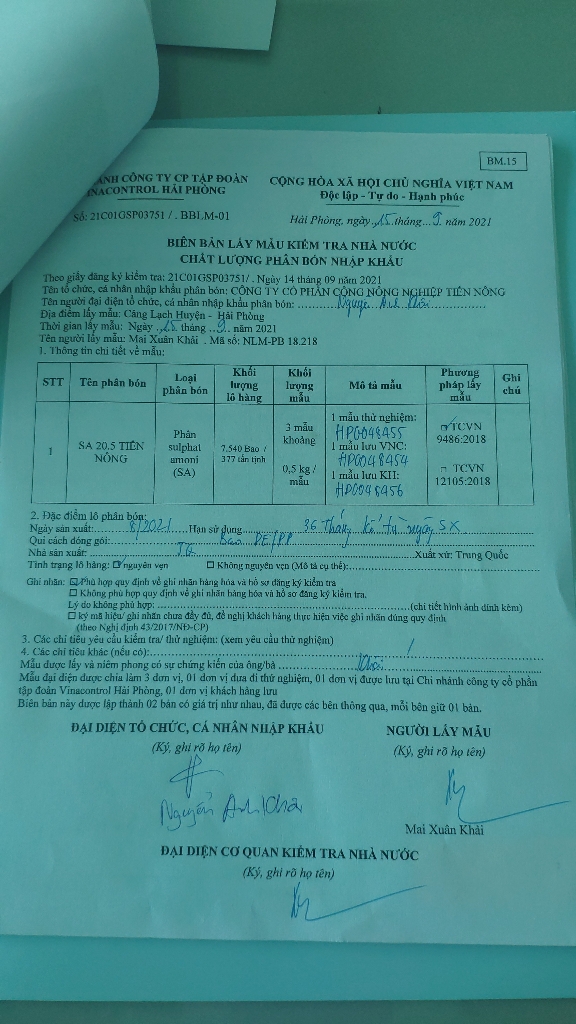 BM.15
ÁNH CÔNG TY CP TẬP ĐOÀN
INACONTROL HẢI PHÒNG
CỘNG HÒA XÃ HỘI CHỦ NGHĨA VIỆT NAM
Độc lập - Tự do - Hạnh phúc
Số: 21C01GSP03751 / . BBLM-01
Hải Phòng, ngày 15 tháng 9 năm 2021
BIÊN BẢN LẤY MẪU KIỂM TRA NHÀ NƯỚC
CHẤT LƯỢNG PHÂN BÓN NHẬP KHẨU
Theo giấy đăng ký kiểm tra: 21C01GSP03751/ . Ngày 14 tháng 09 năm 2021
Tên tổ chức, cá nhân nhập khẩu phân bón: CÔNG TY CỔ PHẦN CÔNG NÔNG NGHIỆP TIẾN NÔNG
Tên người đại diện tổ chức, cá nhân nhập khẩu phân bón: Nguyễn Anh
Địa điểm lấy mẫu: Cảng Lạch Huyện - Hải Phòng
Thời gian lấy mẫu: Ngày 15 tháng 9 năm 2021
Tên người lấy mẫu: Mai Xuân Khải . Mã số: NLM-PB 18.218
1. Thông tin chi tiết về mẫu:
STT
Tên phân bón
Loại phân bón
Khối lượng lô hàng
Khối lượng mẫu
Mô tả mẫu
Phương pháp lấy mẫu
Ghi chú
1
SA 20.5 TIẾN NÔNG
Phân sulphat amoni (SA)
7.540 Bao / 377 tấn tịnh
3 mẫu khoảng 0,5 kg / mẫu
1 mẫu thử nghiệm:
HP0048455
1 mẫu lưu VNC:
HP0048454
1 mẫu lưu KH:
HP0048456
TCVN 9486:2018
TCVN 12105:2018
2. Đặc điểm lô phân bón:
Ngày sản xuất: 8/2021 Hạn sử dụng 36 Tháng kể từ ngày SX
Qui cách đóng gói: Bao PE/PP
Nhà sản xuất: TQ Xuất xứ: Trung Quốc
Tình trạng lô hàng: ☑ nguyên vẹn ☐ Không nguyên vẹn (Mô tả cụ thể):
Ghi nhãn: ☑ Phù hợp quy định về ghi nhãn hàng hóa và hồ sơ đăng ký kiểm tra
☐ Không phù hợp quy định về ghi nhãn hàng hóa và hồ sơ đăng ký kiểm tra.
Lý do không phù hợp: (chi tiết hình ảnh đính kèm)
☐ ký mã hiệu/ ghi nhãn chưa đầy đủ, đề nghị khách hàng thực hiện việc ghi nhãn đúng quy định
(theo Nghị định 43/2017/NĐ-CP)
3. Các chỉ tiêu yêu cầu kiểm tra/ thử nghiệm: (xem yêu cầu thử nghiệm)
4. Các chỉ tiêu khác (nếu có):
Mẫu được lấy và niêm phong có sự chứng kiến của ông/bà
Mẫu đại diện được chia làm 3 đơn vị, 01 đơn vị đưa đi thử nghiệm, 01 đơn vị được lưu tại Chi nhánh công ty cổ phần
tập đoàn Vinacontrol Hải Phòng, 01 đơn vị khách hàng lưu
Biên bản này được lập thành 02 bản có giá trị như nhau, đã được các bên thông qua, mỗi bên giữ 01 bản.
ĐẠI DIỆN TỔ CHỨC, CÁ NHÂN NHẬP KHẨU
(Ký, ghi rõ họ tên)
NGƯỜI LẤY MẪU
(Ký, ghi rõ họ tên)
Nguyễn Anh
Mai Xuân Khải
ĐẠI DIỆN CƠ QUAN KIỂM TRA NHÀ NƯỚC
(Ký, ghi rõ họ tên)